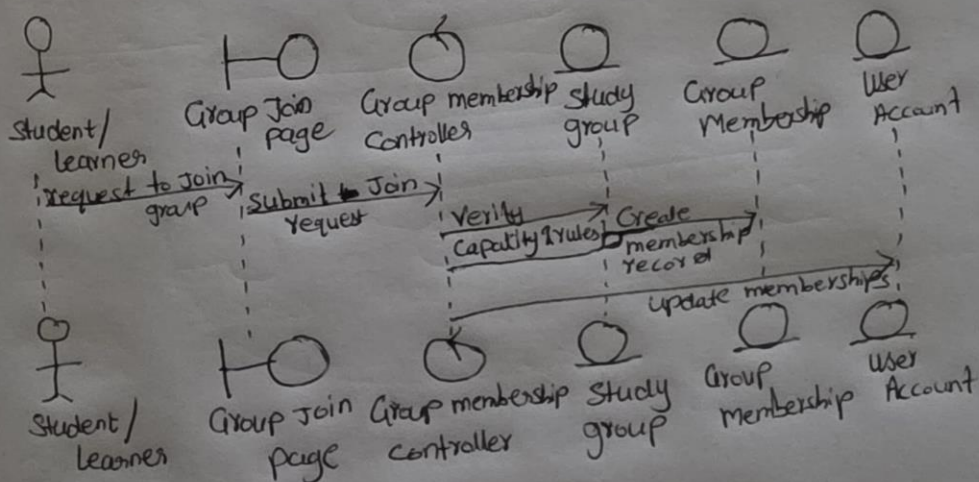 Student/
Learner
Group Join
page
Group membership
Controller
Study
group
Group
Membership
User
Account
request to Join
group
Submit to Join
request
Verify
Capacity & rules
Create
membership
record
update memberships
Student/
Learner
Group Join
page
Group membership
Controller
Study
group
Group
membership
User
Account